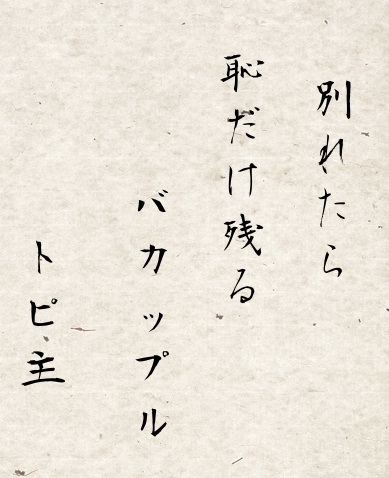 別れたら
恥だけ残る
バカップル
トピ主